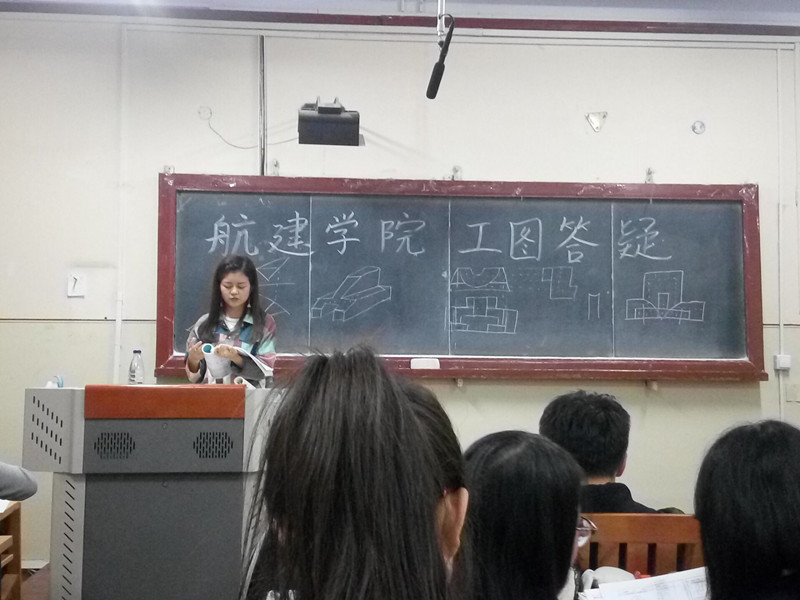 航建学院 工图答疑